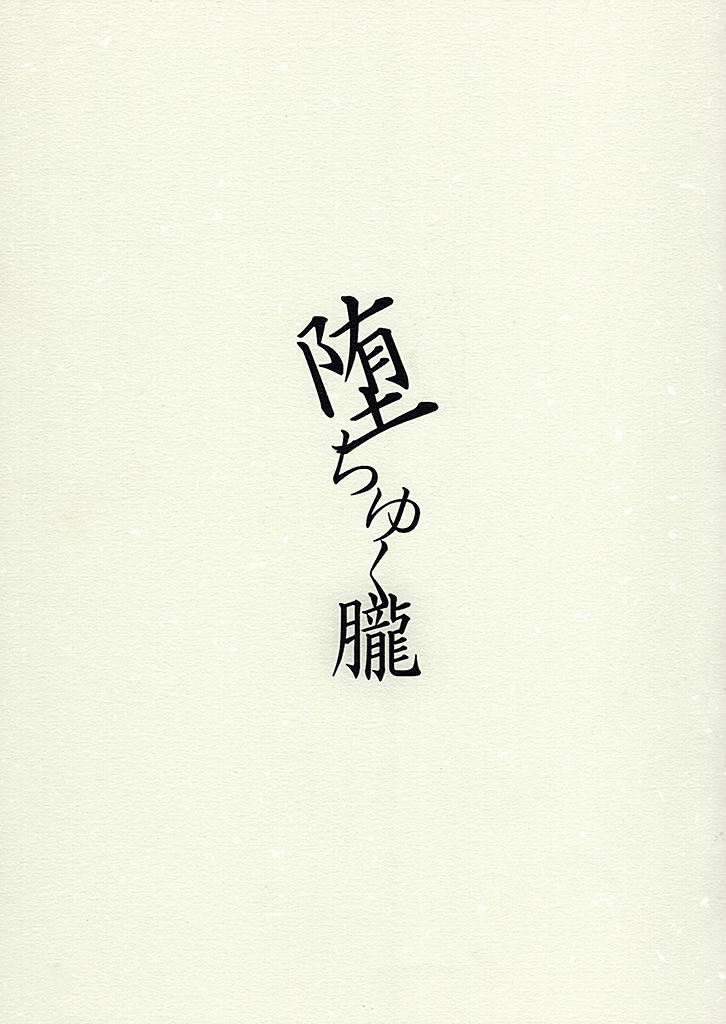 堕ちゆく朧